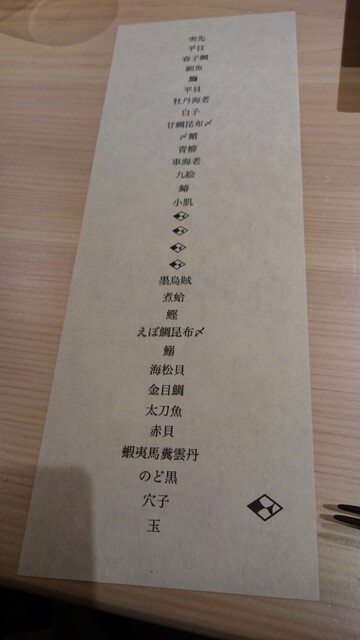 突先
平目
春子鯛
細魚
鰤
平貝
牡丹海老
白子
甘鯛昆布〆
〆鯖
青柳
車海老
九絵
鰆
小肌
墨烏賊
煮蛤
鰹
えぼ鯛昆布〆
鰯
海松貝
金目鯛
太刀魚
赤貝
蝦夷馬糞雲丹
のど黒
穴子
玉